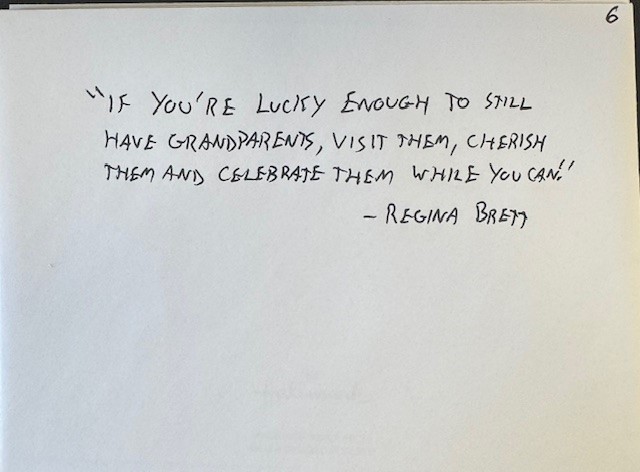 6
"IF YOU'RE LUCKY ENOUGH TO STILL
HAVE GRANDPARENTS, VISIT THEM, CHERISH
THEM AND CELEBRATE THEM WHILE YOU CAN."
- REGINA BRETT